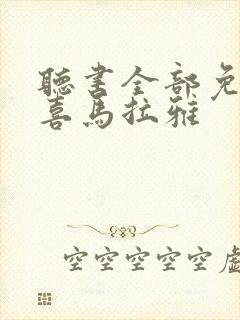 聽書全部免
喜馬拉雅
空空空空空虛